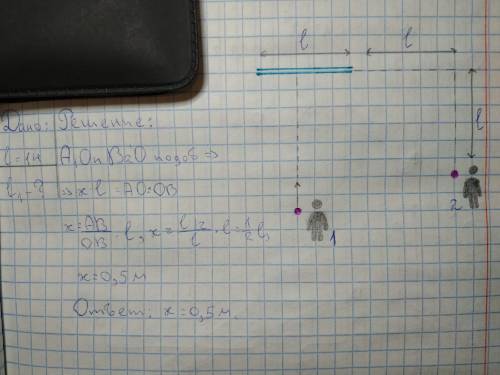 l l
l
Дано: Решение:
l = 1м A₁On B₂O подоб ⇒
l₁ - ? ⇒ x l = AO:OB
x = AB/OB · l, x = (l/2)/l · l = 1/2 l,
x = 0,5 м
Ответ: x = 0,5 м.
1 2